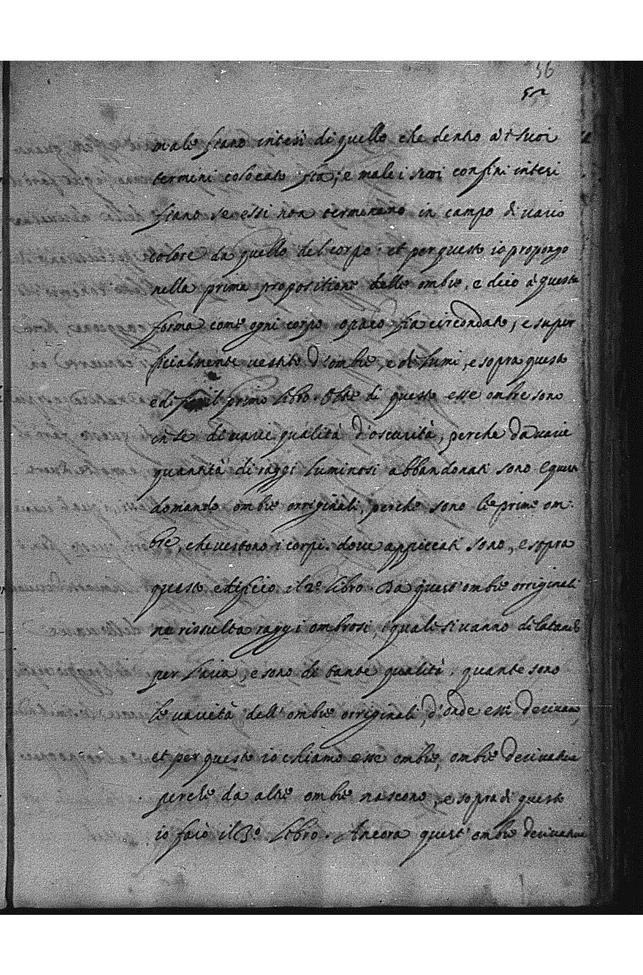 56
52
male siano intesi di quello che dentro à i suoi
termini colocato sia; e male i suoi confini intesi
siano se essi non termenano in campo di vario
colore da quello del corpo; et per questo io propongo
nella prima propositione delle ombre, e dico à questa
forma come ogni corpo opaco sia circondato, e super
ficialmente vestito d'ombre, e di lumi, e sopra questo
edi il primo libro. Oltre di questo esse ombre sono
in se di varie qualità d'oscurità, perche da varie
quantità di raggi luminosi abbandonati sono e queste
domando ombre orriginali, perche sono le prime om-
bre, che vestono i corpi dove appiccati sono, e sopra
questo edificio il 2º libro. Da quest'ombre orriginali
ne rissulta raggi ombrosi, i quale si vanno dilatando
per l'aria, e sono di tante qualità, quante sono
le varietà dell'ombre orriginali, d'onde essi derivano,
et per questo io chiamo esse ombre, ombre derivative
perche da altre ombre nascono, e sopra di questo
io farò il 3º libro. Ancora quest'ombre derivative